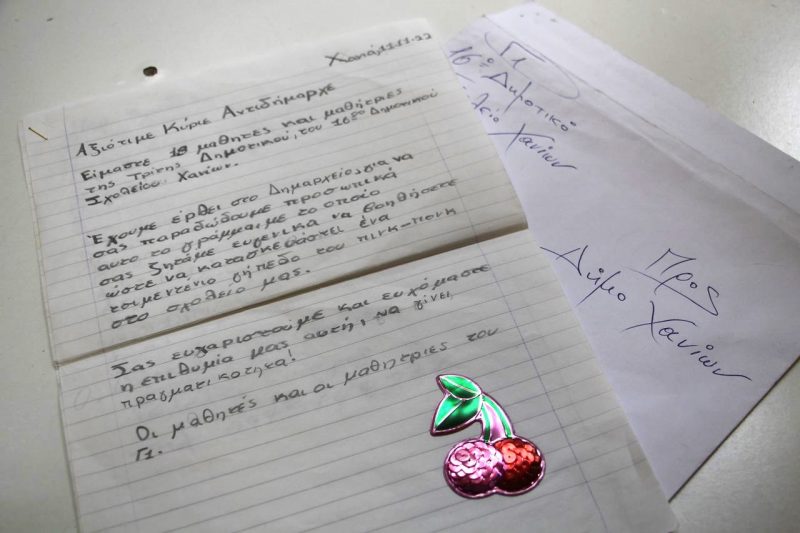 Χανιά, 11-11-22
Αξιότιμε Κύριε Αντιδήμαρχε
Είμαστε 18 μαθητές και μαθήτριες
της Τρίτης Δημοτικού, του 16ου Δημοτικού
Σχολείου Χανίων.
Έχουμε έρθει στο Δημαρχείο, για να
σας παραδώδουμε προσωπικά
αυτο το γράμμα, με το οποίο
σας ζητάμε ευγενικά να βοηθήσετε
ώστε να κατασκευάστει ένα
τσιμεντένιο γήπεδο του πινκ-πονκ
στο σχολείο μας.
Σας ευχαριστούμε και ευχόμαστε
η επιθυμία μας αυτή, να γίνει
πραγματικότητα!
Οι μαθητές και οι μαθήτριες του
Γ1.
Γ1
16ο Δημοτικό
Χανίων
Προς
Δήμο Χανίων